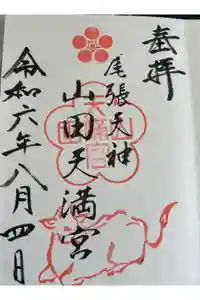 奉拝
尾張天神
山田天満宮
令和六年八月四日